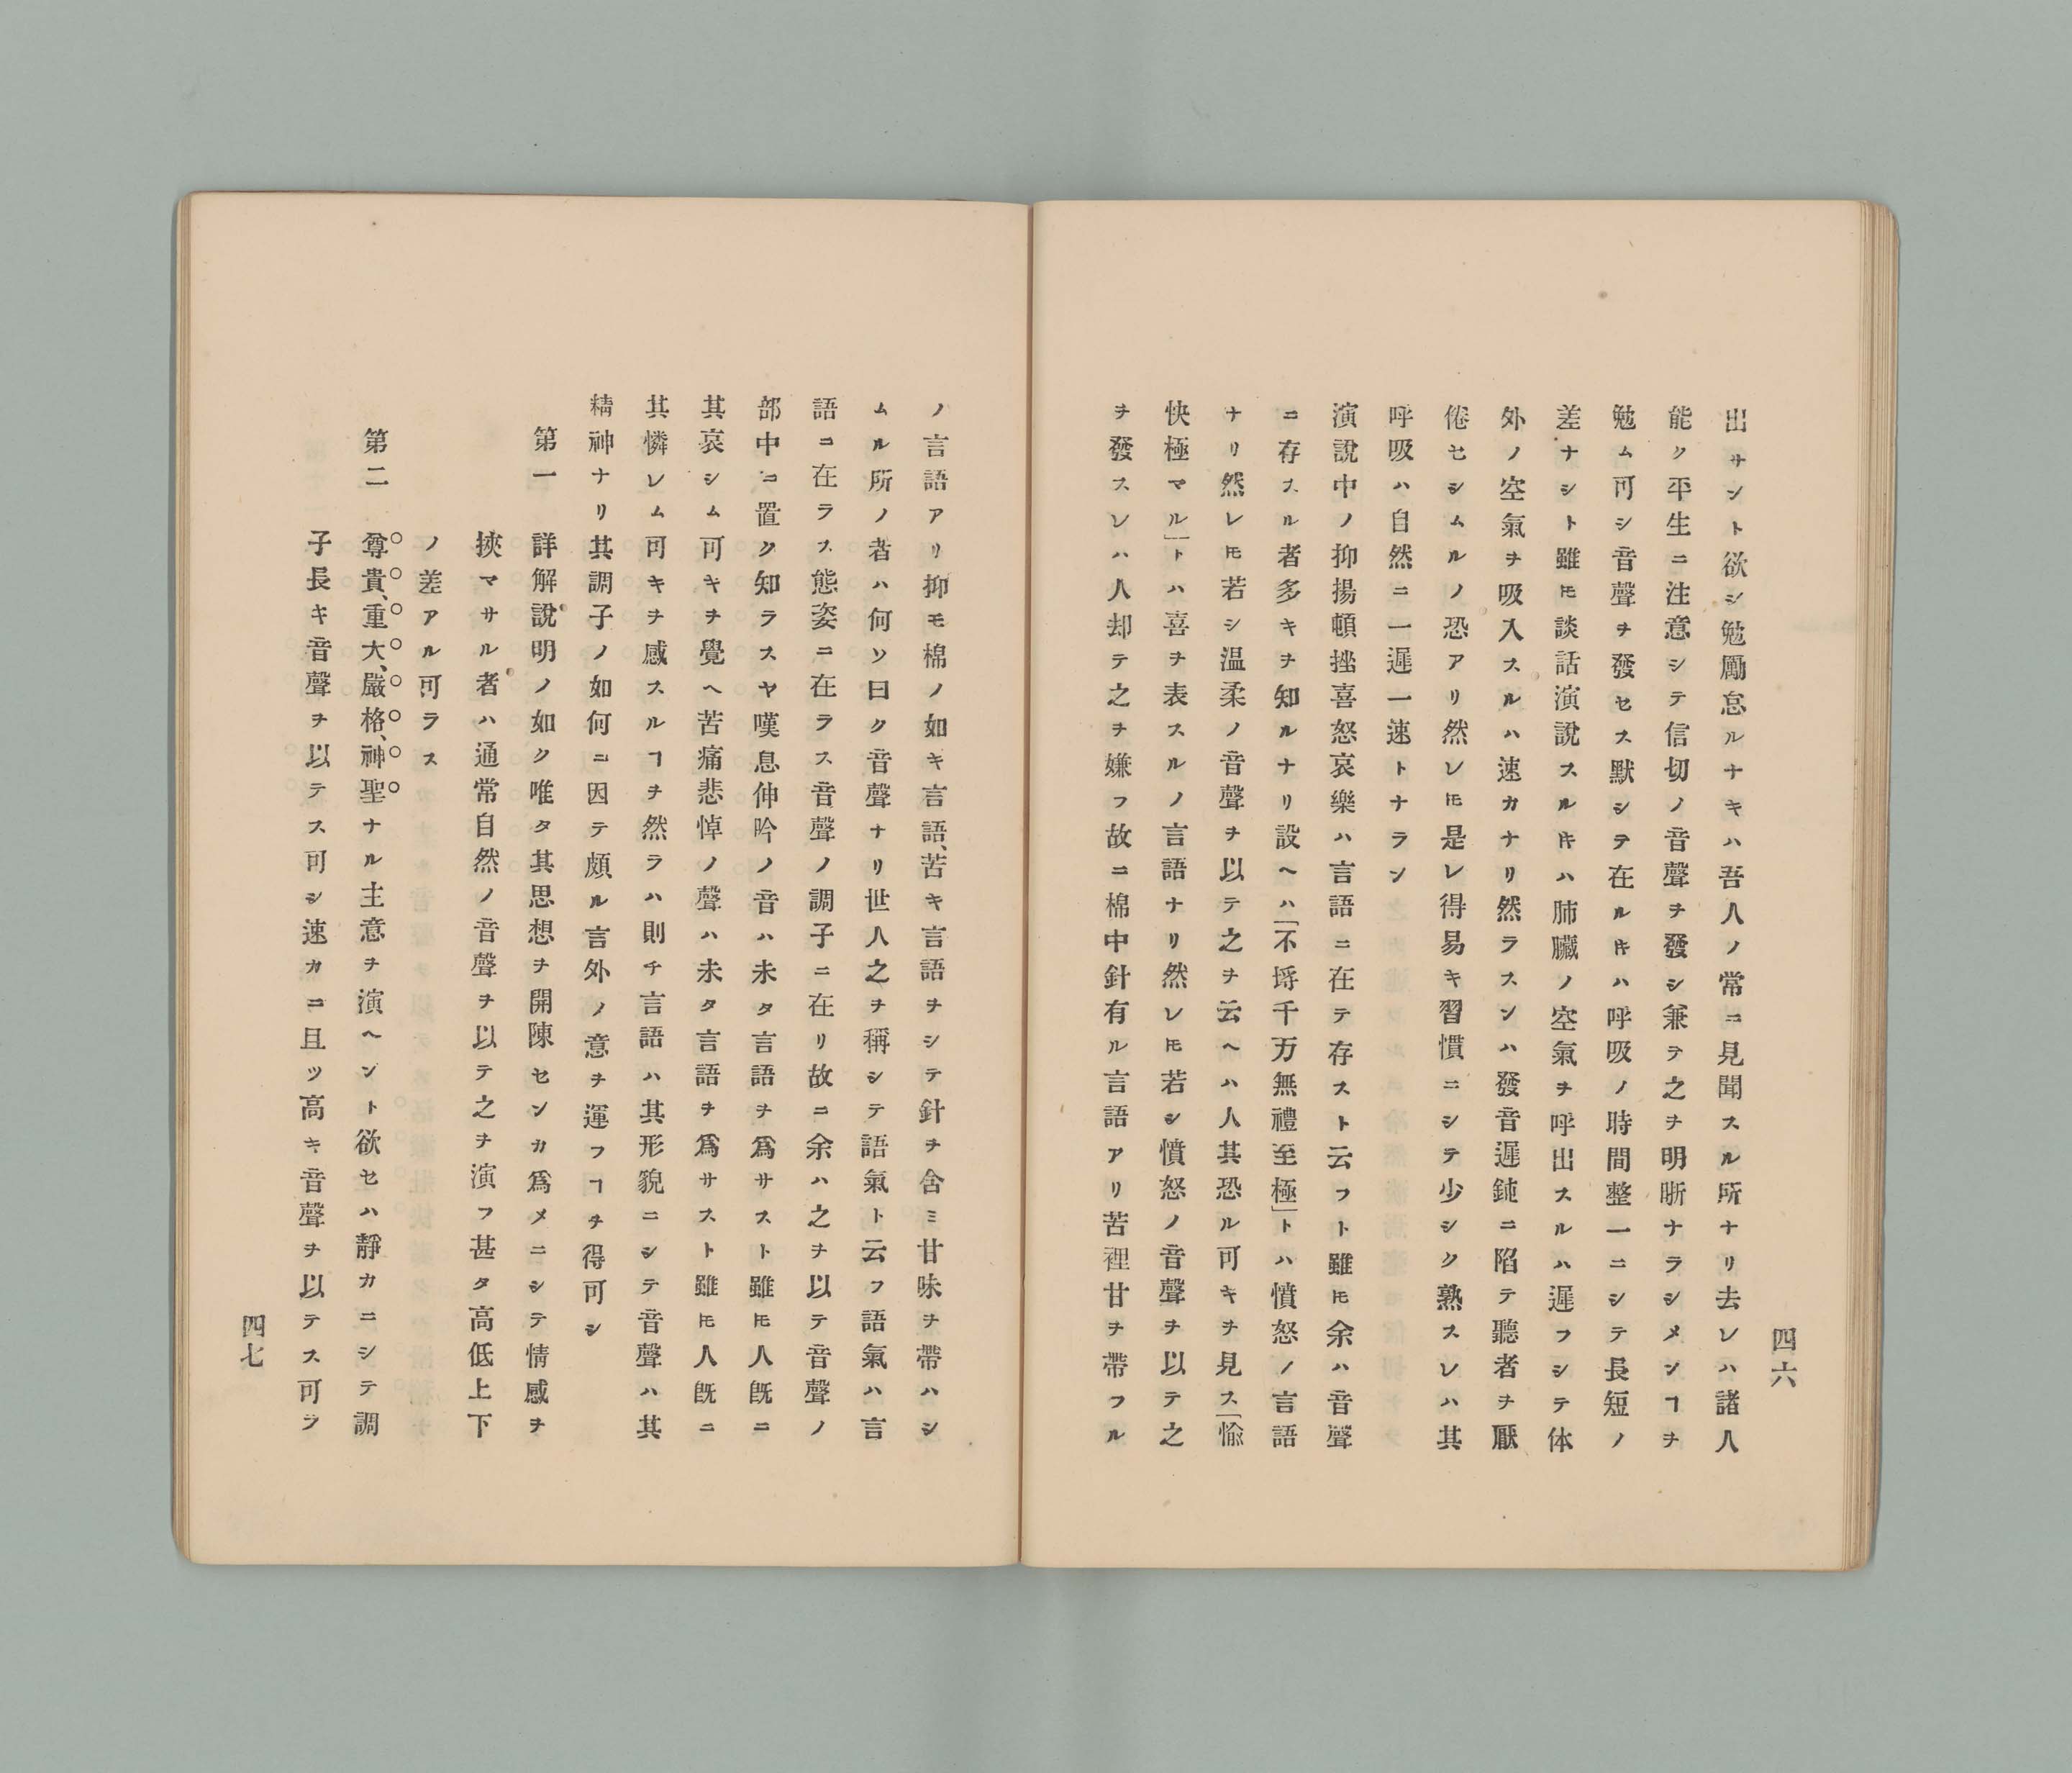 四六
出サント欲シ勉勵怠ルナキハ吾人ノ常ニ見聞スル所ナリ去レハ諸人
能ク平生ニ注意シテ信切ノ音聲ヲ發シ兼テ之ヲ明晣ナラシメンヿヲ
勉ム可シ音聲ヲ發セス默シテ在ルキハ呼吸ノ時間整一ニシテ長短ノ
差ナシト雖𪜈談話演說スルキハ肺臟ノ空氣ヲ呼出スルハ遲フシテ体
外ノ空氣ヲ吸入スルハ速カナリ然ラスンハ發音遲鈍ニ陷テ聽者ヲ厭
倦セシムルノ恐アリ然レ𪜈是レ得易キ習慣ニシテ少シク熟スレハ其
呼吸ハ自然ニ一遲一速トナラン
演說中ノ抑揚頓挫喜怒哀樂ハ言語ニ在テ存スト云フト雖𪜈余ハ音聲
ニ存スル者多キヲ知ルナリ設ヘハ「不埓千万無禮至極」トハ憤怒ノ言語
ナリ然レ𪜈若シ温柔ノ音聲ヲ以テ之ヲ云ヘハ人其恐ル可キヲ見ス「愉
快極マル」トハ喜ヲ表スルノ言語ナリ然レ𪜈若シ憤怒ノ音聲ヲ以テ之
ヲ發スレハ人却テ之ヲ嫌フ故ニ棉中針有ル言語アリ苦裡甘ヲ帶フル
ノ言語アリ抑モ棉ノ如キ言語、苦キ言語ヲシテ針ヲ含ミ甘味ヲ帶ハシ
ムル所ノ者ハ何ソ曰ク音聲ナリ世人之ヲ稱シテ語氣ト云フ語氣ハ言
語ニ在ラス態姿ニ在ラス音聲ノ調子ニ在リ故ニ余ハ之ヲ以テ音聲ノ
部中ニ置ク知ラスヤ嘆息伸吟ノ音ハ未タ言語ヲ爲サスト雖𪜈人旣ニ
其哀シム可キヲ覺ヘ苦痛悲悼ノ聲ハ未タ言語ヲ爲サスト雖𪜈人旣ニ
其憐レム可キヲ感スルヿヲ然ラハ則チ言語ハ其形貌ニシテ音聲ハ其
精神ナリ其調子ノ如何ニ因テ頗ル言外ノ意ヲ運フヿヲ得可シ
第一　詳解說明ノ如ク唯タ其思想ヲ開陳センカ爲メニシテ情感ヲ
挾マサル者ハ通常自然ノ音聲ヲ以テ之ヲ演フ甚タ高低上下
ノ差アル可ラス
第二　尊貴、重大、嚴格、神聖ナル主意ヲ演ヘント欲セハ靜カニシテ調
子長キ音聲ヲ以テス可シ速カニ且ツ高キ音聲ヲ以テス可ラ
四七